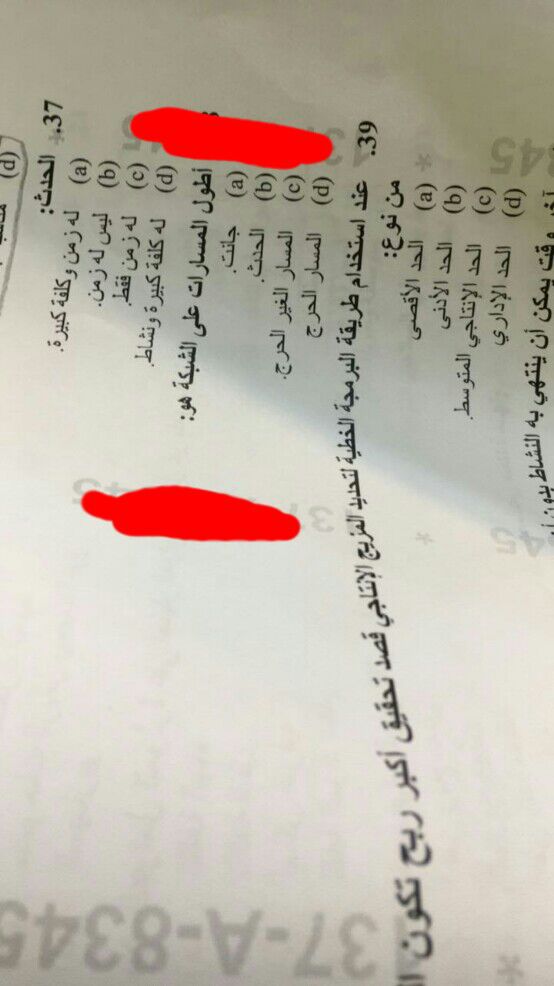 (d)
.37 الحدث:
(a) له زمن وكلفة كبيرة.
(b) ليس له زمن.
(c) له زمن فقط.
(d) له كلفة كبيرة ونشاط.
أطول المسارات على الشبكة هو:
(a) جانت.
(b) الحدث.
(c) المسار الغير الحرج.
(d) المسار الحرج
.39 عند استخدام طريقة البرمجة الخطية لتحديد المزيج الإنتاجي قصد تحقيق أكبر ربح تكون
من نوع:
(a) الحد الأقصى
(b) الحد الأدنى
(c) الحد الإنتاجي المتوسط.
(d) الحد الإداري
آخر وقت يمكن أن ينتهي به النشاط بدون
37-A-8345